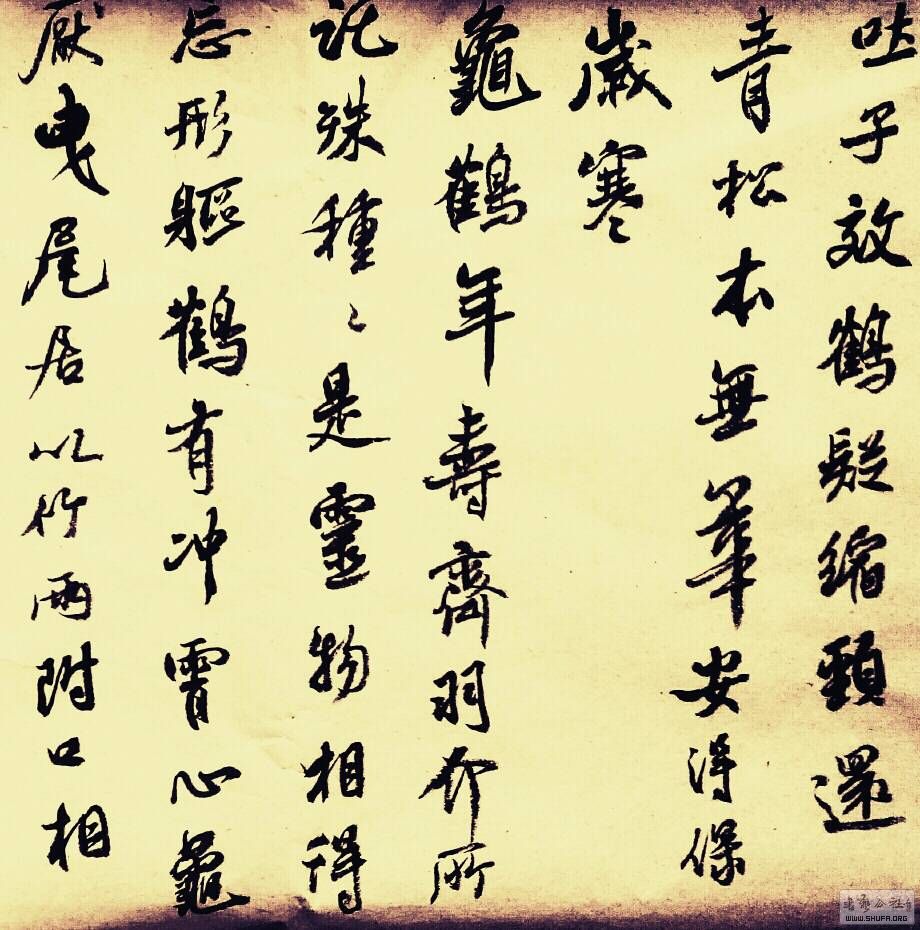 吐子效鶴疑縮頸還
青松本無華安得保
歲寒
龜鶴年壽齊羽介所
託殊種〻是靈物相得
忘形軀鶴有冲霄心龜
厭曳尾居以竹兩附口相
WWW.SHUFA.ORG